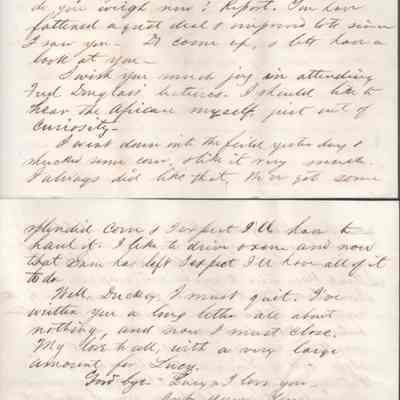 do you weigh now? Report. You have
fattened a great deal & improved lots since
I saw you - So come up, & lets have a
look at you -
I wish you much joy in attending
Fred Douglass' lectures. I should like to
hear the African myself, just out of
curiosity -
I went down into the field yesterday &
shucked some corn, & like it very much.
I always did like that, We've got some
splendid corn & I expect I'll have to
haul it. I like to drive oxen and now
that Sam has left I expect I'll have all of it
to do
Well, Ducky, I must quit. I've
written you a long letter all about
nothing, and now I must close.
My love to all, with a very large
amount for Lucy.
Good bye - Lucy - I love you -